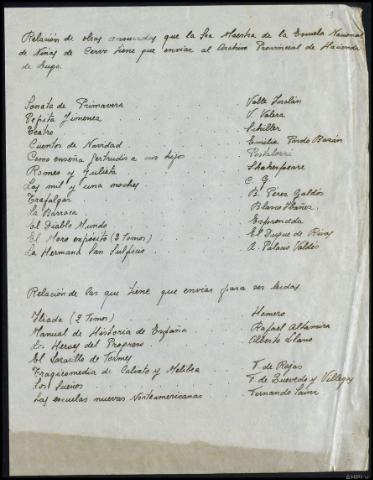 Relación de obras censuradas que la Sra Maestra de la Escuela Nacional
de Niñas de Cervo tiene que enviar al Archivo Provincial de Hacienda
de Lugo.
Sonata de Primavera . . . Valle Inclán
Pepita Jimenez . . . V. Valera
Teatro . . . Schiller
Cuentos de Navidad . . . Emilia Pardo Bazán
Como enseña Jertrudis a sus hijos . . . Pestalozzi
Romeo y Julieta . . . Shakespeare
Las mil y una noches . . . C. G.
Trafalgar . . . B. Perez Galdós
La Barraca . . . Blasco Ibañez
El Diablo Mundo . . . Espronceda
El Moro expósito (2 Tomos) . . . El Duque de Rivas
La Hermana San Sulpicio . . . A. Palacio Valdés
Relación de las que tiene que enviar para ser leidas.
Iliada (2 Tomos) . . . Homero
Manual de Historia de España . . . Rafael Altamira
Los Heroes del Progreso . . . Alberto Llano
El Lazarillo de Tormes
Tragicomedia de Calixto y Melibea . . . F. de Rojas
Los Sueños . . . F. de Quevedo y Villegas
Las escuelas nuevas Norteamericanas . . . Fernando Sainz